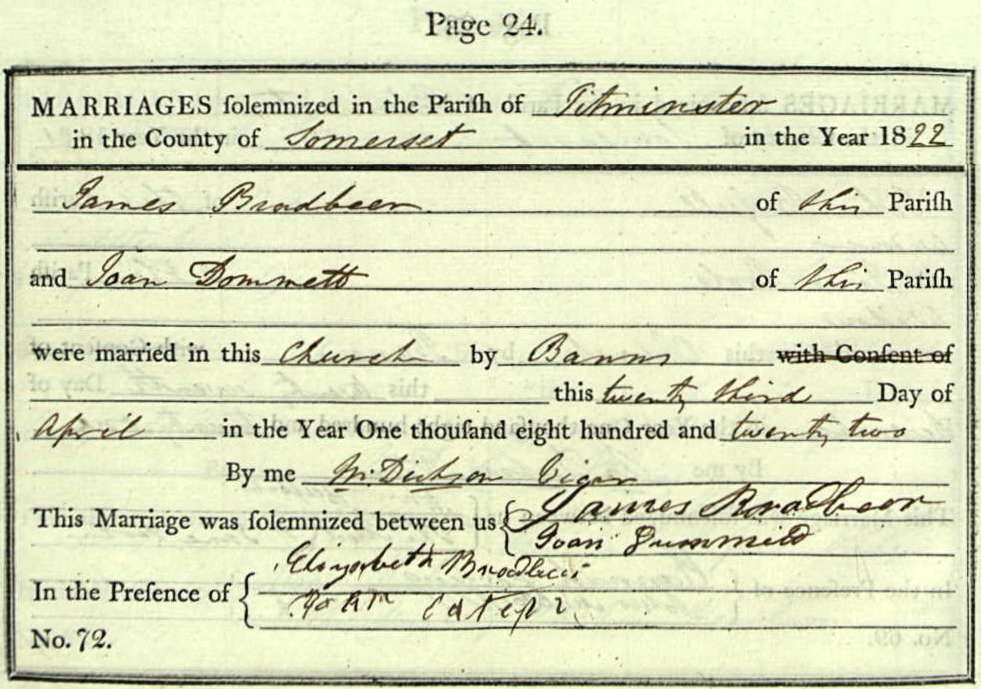 Page 24.
MARRIAGES ſolemnized in the Pariſh of Pitminster
in the County of Somerset in the Year 1822
James Broadbeer of this Pariſh
and Joan Dommett of this Pariſh
were married in this Church by Banns with Conſent of
this twenty third Day of
April in the Year One thouſand eight hundred and twenty two
By me W. Dickson Vicar
This Marriage was ſolemnized between us { James Broadbeer
Joan Dummett
Elizabeth Broadbeer
In the Preſence of {
No. 72.